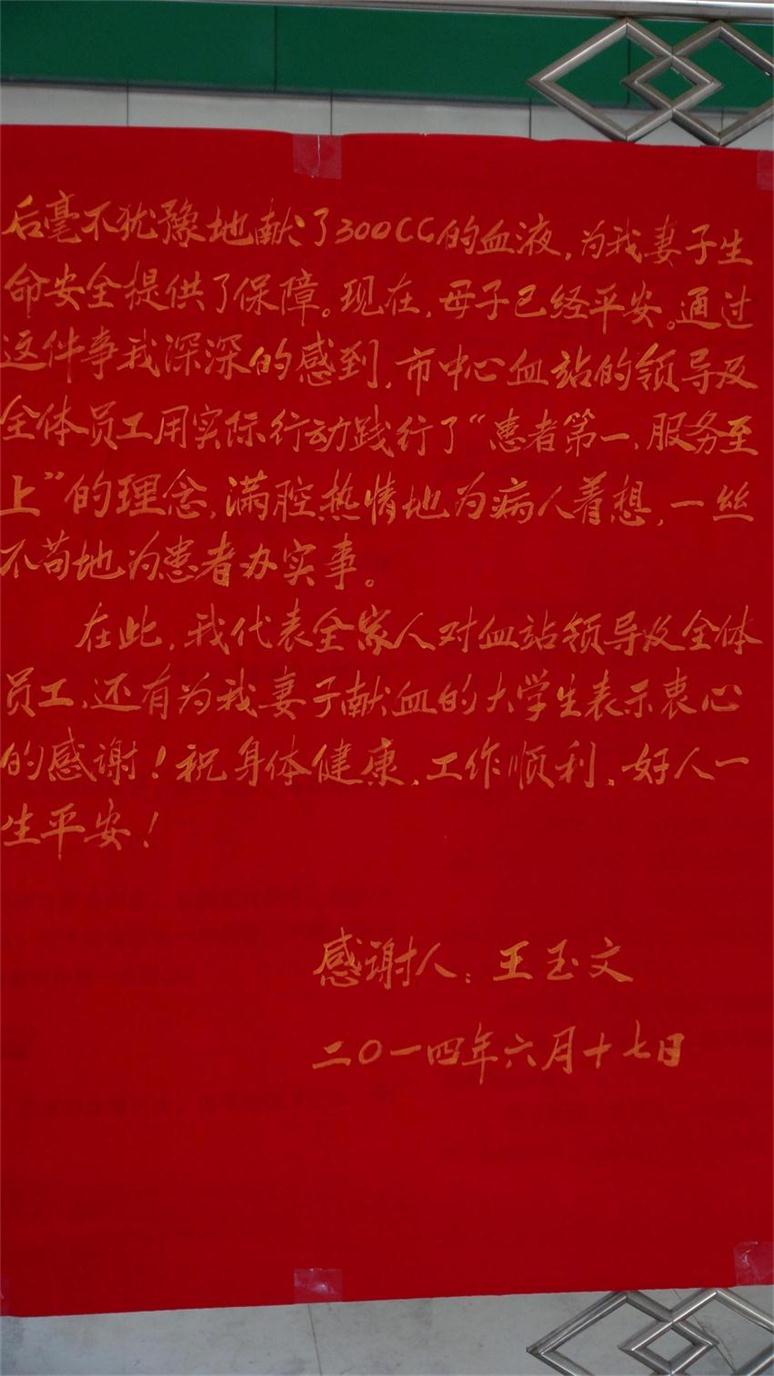 后毫不犹豫地献了300CC的血液,为我妻子生
命安全提供了保障。现在,母子已经平安。通过
这件事我深深的感到,市中心血站的领导及
全体员工用实际行动践行了“患者第一,服务至
上”的理念,满腔热情地为病人着想,一丝
不苟地为患者办实事。
在此,我代表全家人对血站领导及全体
员工、还有为我妻子献血的大学生表示衷心
的感谢!祝身体健康、工作顺利、好人一
生平安!
感谢人:王玉文
二〇一四年六月十七日